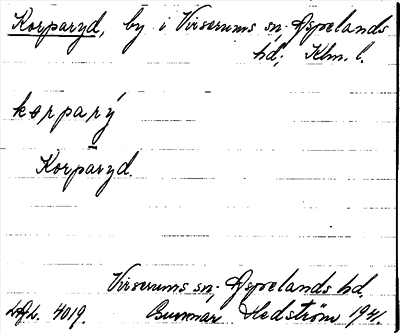 Korparyd, by i Virserums sn; Aspelands
hd; Klm. l.
korparý
Korparyd.
Virserums sn; Aspelands hd.
4019. Gunnar Hedström 1941.